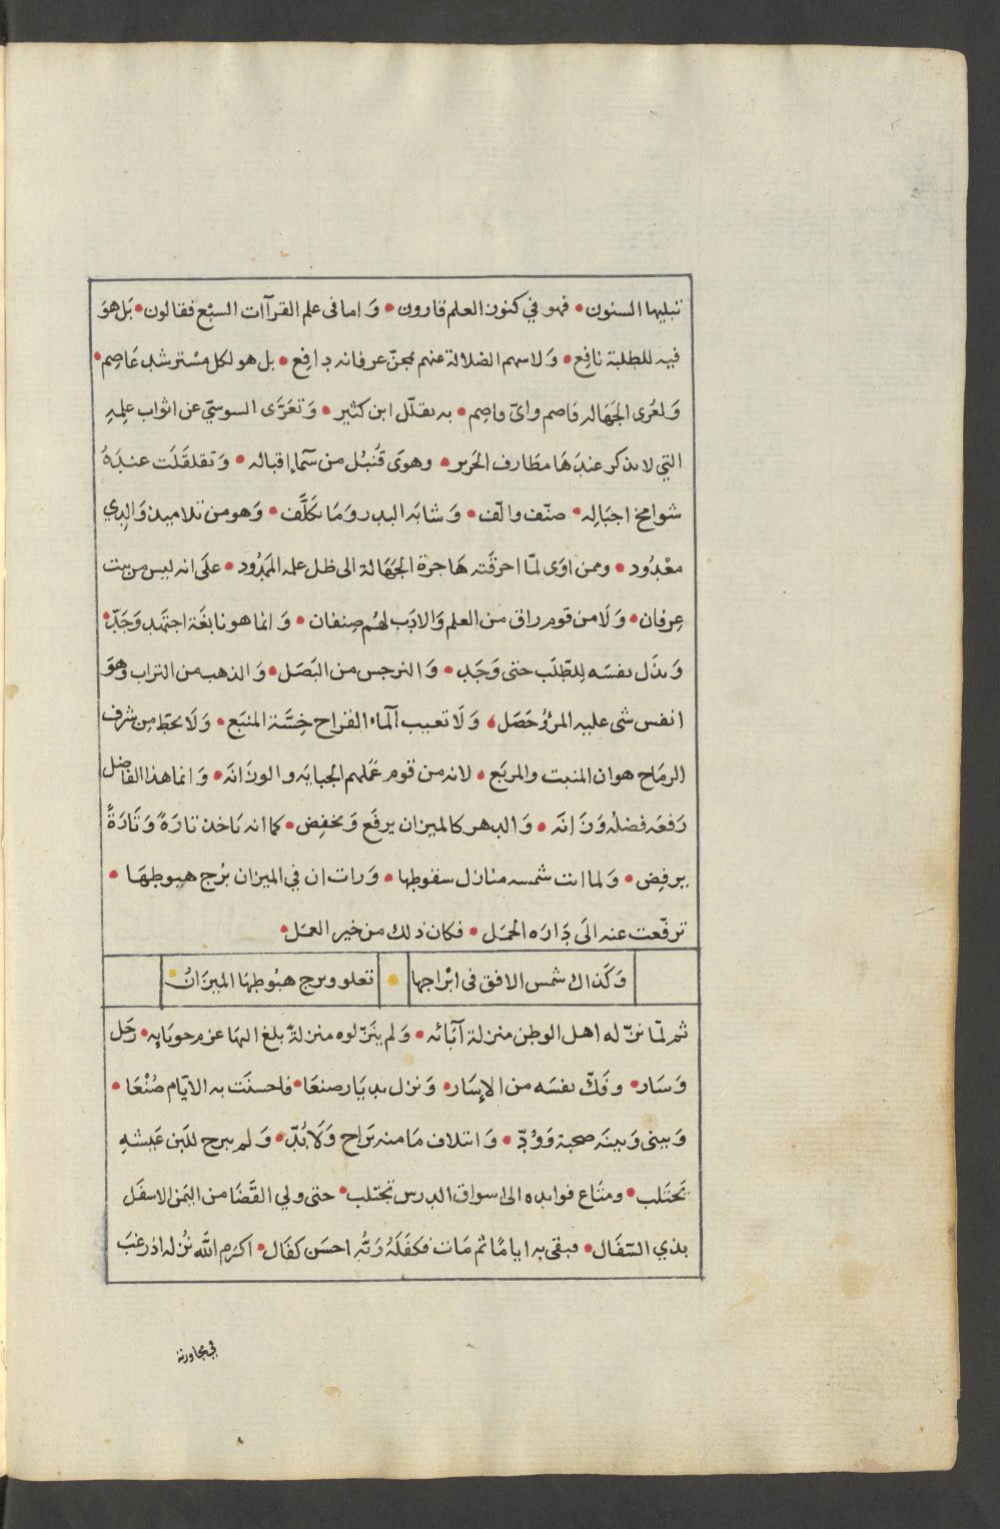 تبليها السنون • فهو في كنوز العلم قارون • وَاما فى علم القرآات السبْع فقالون • بَل هوَ
فيه للطلبة نافِع • وَلاسهم الضلالة عنهم بمجنّ عرفانه دافِع • بل هو لكل مسْترشد عَاصِم •
وَلعُرى الجَهَاله قاصم واىّ قاصِم • به يقلّل ابن كثير • وَتعَرّى السوسيّ عن اثواب علِمِهِ
التي لا يذكر عندَهَا مطَارف الحَرير • وهوَى قُنبُل من سَماء اقباله • وَتقلقَلَت عندَهُ
شوامخ اجبَالِه • صنّف والّف • وَشابَه البدر وَمَا تكَلَّف • وَهو من تلاميذ وَالِدي
معْدُود • وممن اوَى لمّا احرقَته هَاجرة الجَهَالة الى ظل علمه المَمْدُود • علَى انه ليس من بيت
عِرفان • وَلَا من قوم راق من العلم وَالادَب لهُم صِنفان • وَانما هو نابغَة اجتهَد وَجَدّ •
وَبذَل نفسَه لِلطّلَب حتى وَجَد • وَالنرجس من البَصَل • وَالذهب من التراب وهوَ
انفس شى عليه المرْؤ حَصَل • وَلَا تعيب الَماء القراح خِسَّة المنبَع • وَلَا يحَطّ مِن شرف
الرمَاح هوان المنبت والمربَع • لانه من قوم عَملهم الجبايَه والوزانَه • وَانما هذا الفاضل
رَفعَه فضلُه وَزَانَه • وَالدهر كالميزان يرفَع وَيخفِض • كما انه يَاخذ تارَةً وَتَارَةً
يرفِض • وَلما انت شمسه منازل سقوطها • وَرات ان فِي الميزان بُرج هبوطِهَا •
ترفّعت عنه الَى دَارَه الحَمَل • فكان ذلك من خير العمَل •
وَكَذاك شمس الافق فى ابْراجها • تعلو وبرج هبُوطِهَا الميزَانُ •
ثم لمّا نزّله اهل الوطن منزلة آبَائه • وَلم ينَزّلوه منزلةً بلغ اليهَا عزم حوبَايِه • رَحَل
وَسَار • وفَكّ نفسَه من الإِسَار • وَنزل بديَار صنعَا • فاحسنَت به الايّام صُنْعَا •
وَبينى وَبينَه صحبة وَوُدّ • وَائتلاف مَا منه بَراح وَلَا بُدّ • وَلم يبرح للبَن عَيشهِ
يَحتَلب • ومتَاع فوايده الى اسواق الدرس تجتلب • حتى ولي القَضَا من اليَمَن الاسفَل
بذي السّفَال • فبقى به ايامًا ثم مَات فكفَلَهُ رَبُّه احسَن كفَال • اكرَم الله نُزله اذ رغبَ
في مجاورته